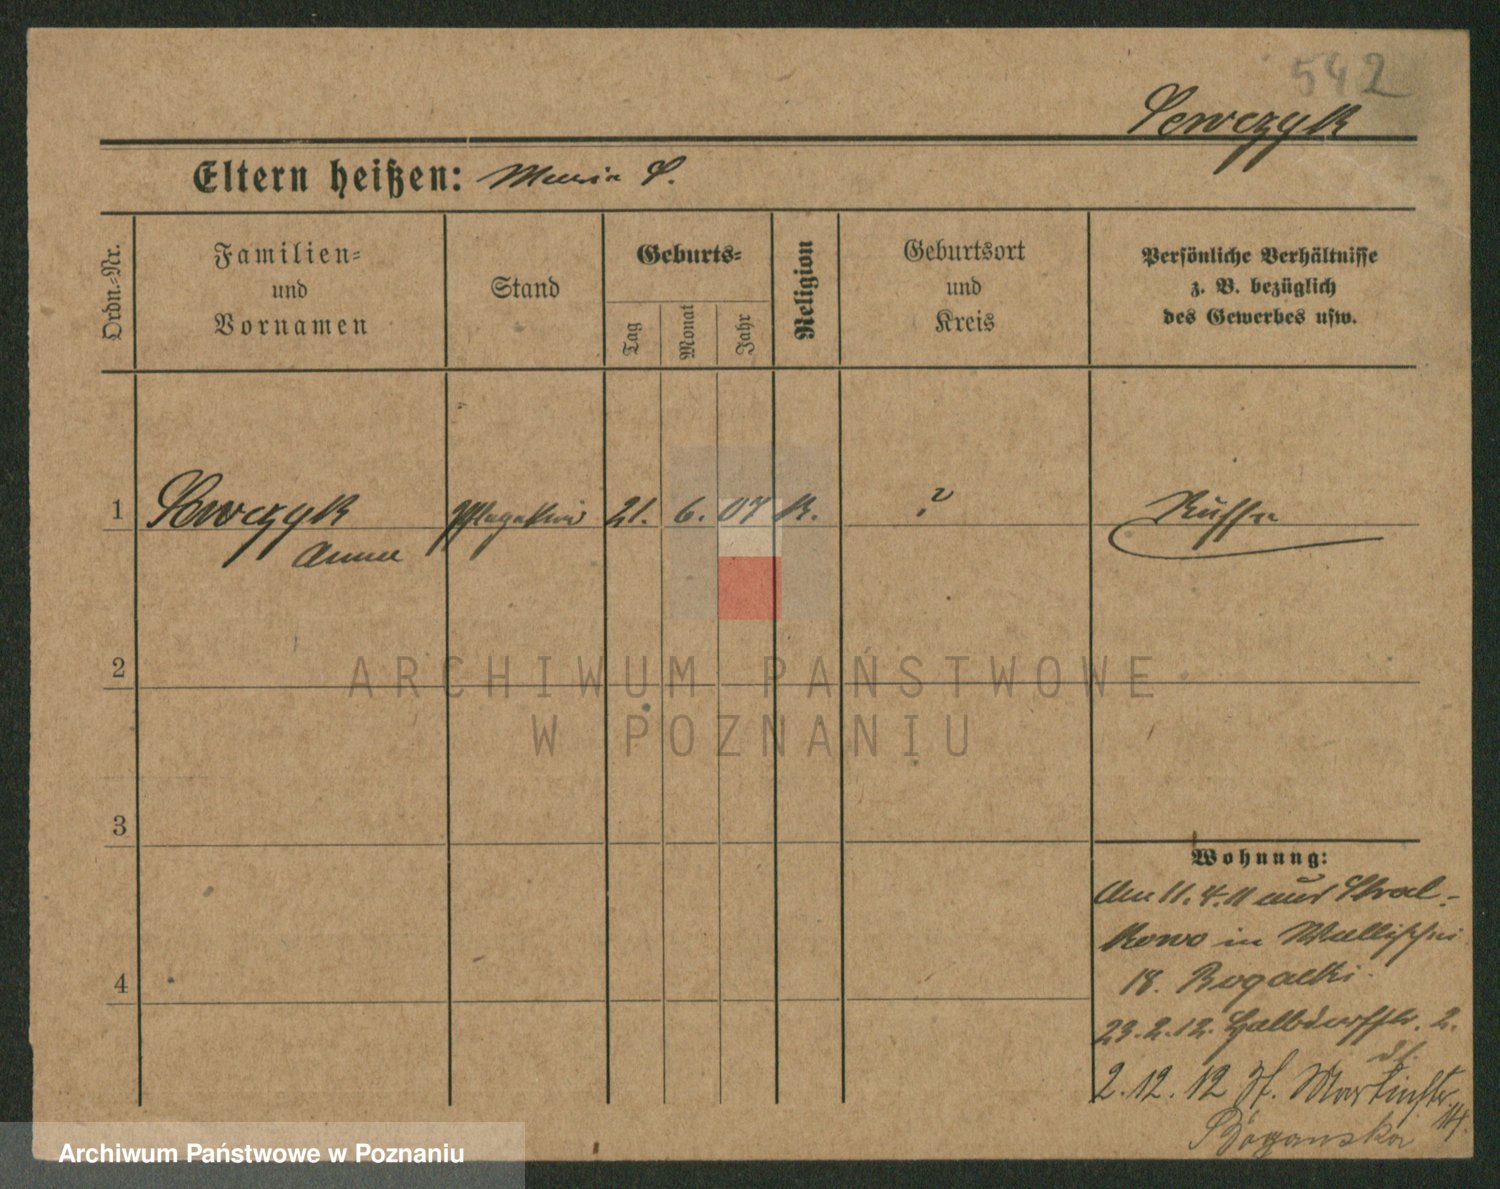 542
Sewczyk
Eltern heißen: Maria S.
Ordn.-Nr.
Familien-
und
Vornamen
Stand
Geburts-
Tag
Monat
Jahr
Religion
Geburtsort
und
Kreis
Persönliche Verhältnisse
z. B. bezüglich
des Gewerbes usw.
1 Sewczyk 21. 6. 07 K. ?
Anna
2
ARCHIWUM PAŃSTWOWE
W POZNANIU
3
Wohnung:
Am 11.4.11 aus Stral-
kowo in Wallischei
4
18. Rogacki.
23.2.12. Halbdorfstr. 2.
2.12.12 St. Martinstr.
14.
Archiwum Państwowe w Poznaniu